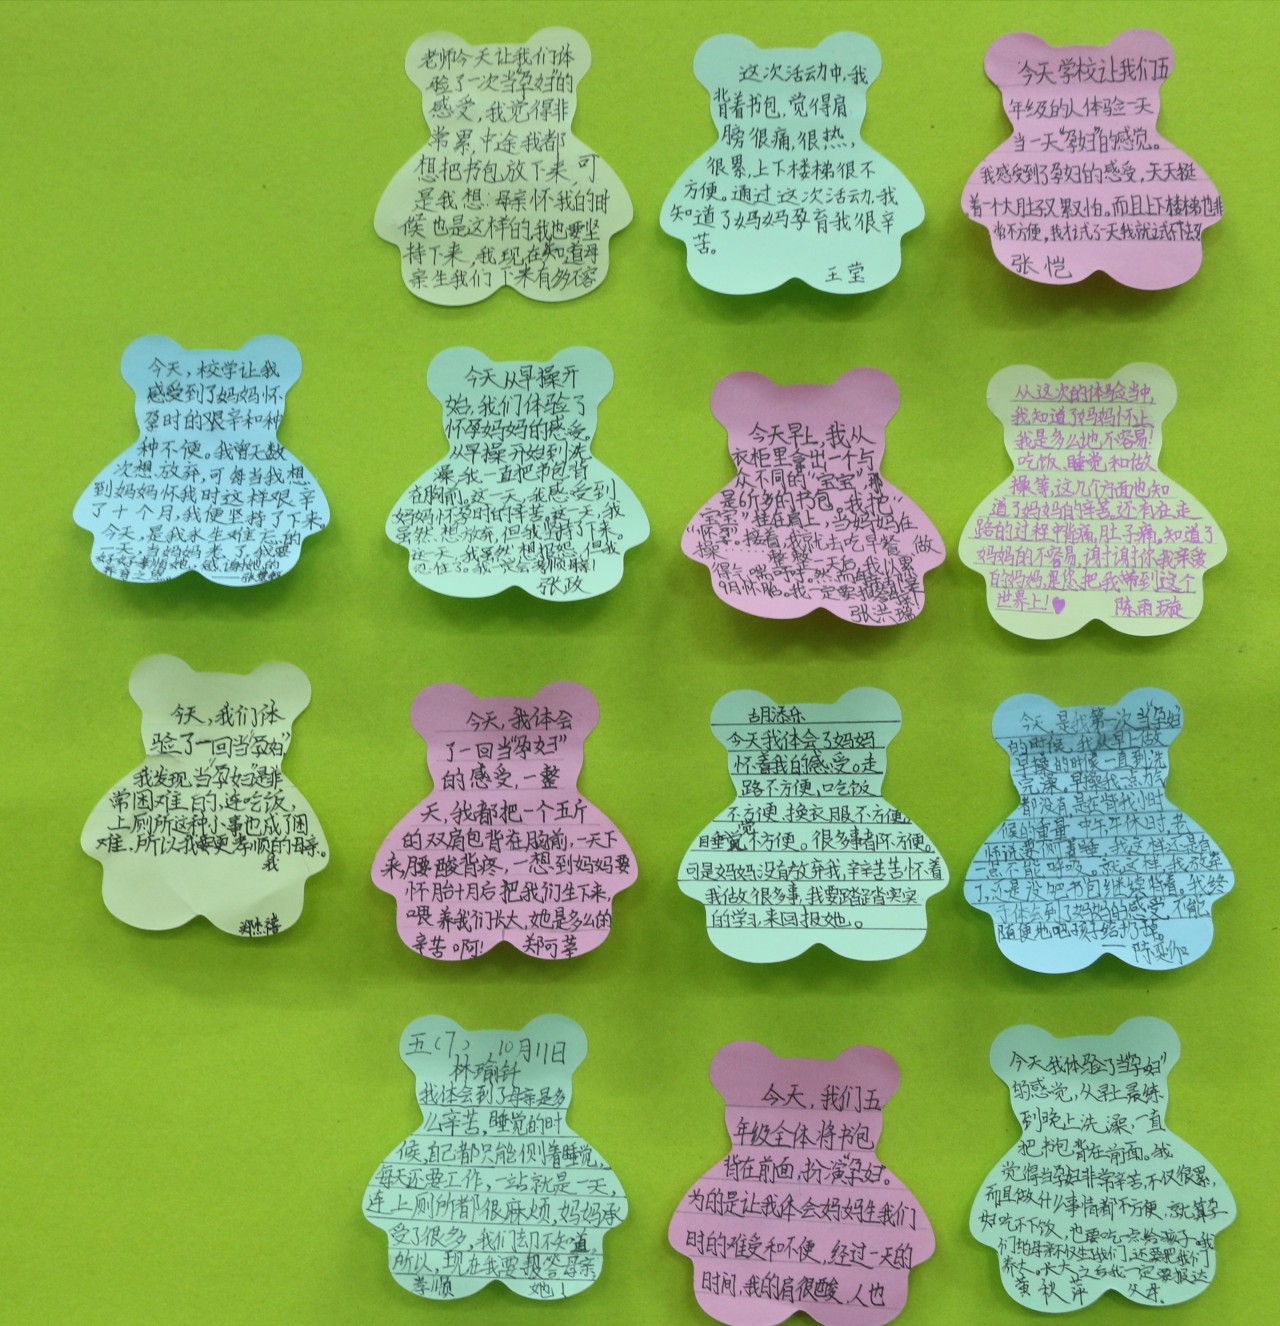 老师今天让我们体
验了一次当"孕妇"的
感受,我觉得非
常累,中途我都
想把书包放下来,可
是我想:母亲怀我的时
候也是这样的,我也要坚
持下来,我现在知道母
亲生我们下来有多不容
这次活动中,我
背着书包,觉得肩
膀很痛,很热,
很累,上下楼梯很不
方便。通过这次活动,我
知道了妈妈孕育我很辛
苦。
王莹
今天学校让我们五
年级的人体验一天
当一天"孕妇"的感觉。
我感受到了孕妇的感受,天天挺
着一个大肚子又累又怕。而且上下楼梯也非
常不方便,我才试了一天我就试不下去了
张恺
今天,校学让我
感受到了妈妈怀
孕时的艰辛和种
种不便。我曾无数
次想放弃,可每当我想
到妈妈怀我时这样艰辛
了十个月,我便坚持了下来。
今天,是我永生难忘的
一天,当妈妈来了,我要
好好孝顺她,感谢她的
今天从早操开
始,我们体验了
怀孕妈妈的感受。
从早操开始到洗
澡我一直把书包背
在胸前。这一天,我感受到
妈妈怀孕时的辛苦。这一天,我
虽然想放弃,但我坚持了下来。
这一天,我虽然想抱怨,但我
忍住了。我一定会孝顺妈妈!
张政
今天早上,我从
衣柜里拿出一个与
众不同的"宝宝",那
是6斤多的书包。我把"
宝宝"挂在肩上,当妈妈在
"怀孕"。接着,我就去吃早餐、做
操……整整
得气喘吁吁。然后,我以累
9月怀胎。我一定要报答母亲
张洪瑞
从这次的体验当中,
我知道了妈妈怀上
我是多么地不容易!
吃饭、睡觉和做
操等,这几个方面也知
道了妈妈的辛苦,还有在走
路的过程中背痛,肚子痛,知道了
妈妈的不容易,谢谢你我亲爱
的妈妈,是您把我带到这个
世界上!♥ 陈雨璇
今天,我们体
验了一回当"孕妇"
我发现,当"孕妇"是非
常困难的,连吃饭,
上厕所这种小事也成了困
难,所以我要更孝顺的母亲。
我
今天,我体会
了一回当"孕妇"
的感受,一整
天,我都把一个五斤
的双肩包背在胸前,一天下
来,腰酸背疼,一想到妈妈要
怀胎十月后把我们生下来,
喂养我们长大,她是多么的
辛苦。啊! 郑可莘
胡添乐
今天我体会了妈妈
怀着我的感受。走
路不方便,吃饭
不方便,换衣服不方便,
睡觉不方便。很多事都不方便。
可是妈妈没有放弃我,辛辛苦苦怀着
我做很多事,我要踏踏实实
的学习,来回报她。
今天是我第一次当"孕妇"
的时候,我从早上做
早操的时候一直到洗
完澡。早操我一点力气
都没有,是在背我小时
候的重量,中午午休时,老
师说要侧着睡,我这样还是有
点不能呼吸。就这样,我放弃
了,还是没把书包继续背着。我终
于体会到了妈妈的感受,不能
随便地吗孩子给扔掉。
五(7) 10月11日
林瑜钎
我体会到了母亲是多
么辛苦,睡觉的时
候,自己都只能侧着睡觉,
每天还要工作,一站就是一天,
连上厕所都很麻烦,妈妈承
受了很多,我们却不知道。
所以,现在我要报答母亲
孝顺 她!
今天,我们五
年级全体将书包
背在前面,扮演"孕妇"。
为的是让我体会妈妈生我们
时的难受和不便,经过一天的
时间,我的肩很酸,人也
今天我体验了当"孕妇"
的感觉,从早上晨练
到晚上洗澡,一直
把书包背在前面。我
觉得当孕妇非常辛苦,不仅很累,
而且做什么事情都不方便,就算孕
妇吃不下饭,也要吃一点给孩子。我
们的母亲不仅生我们,还要把我们
养大。长大之后我一定要报达
黄秋萍 父母。